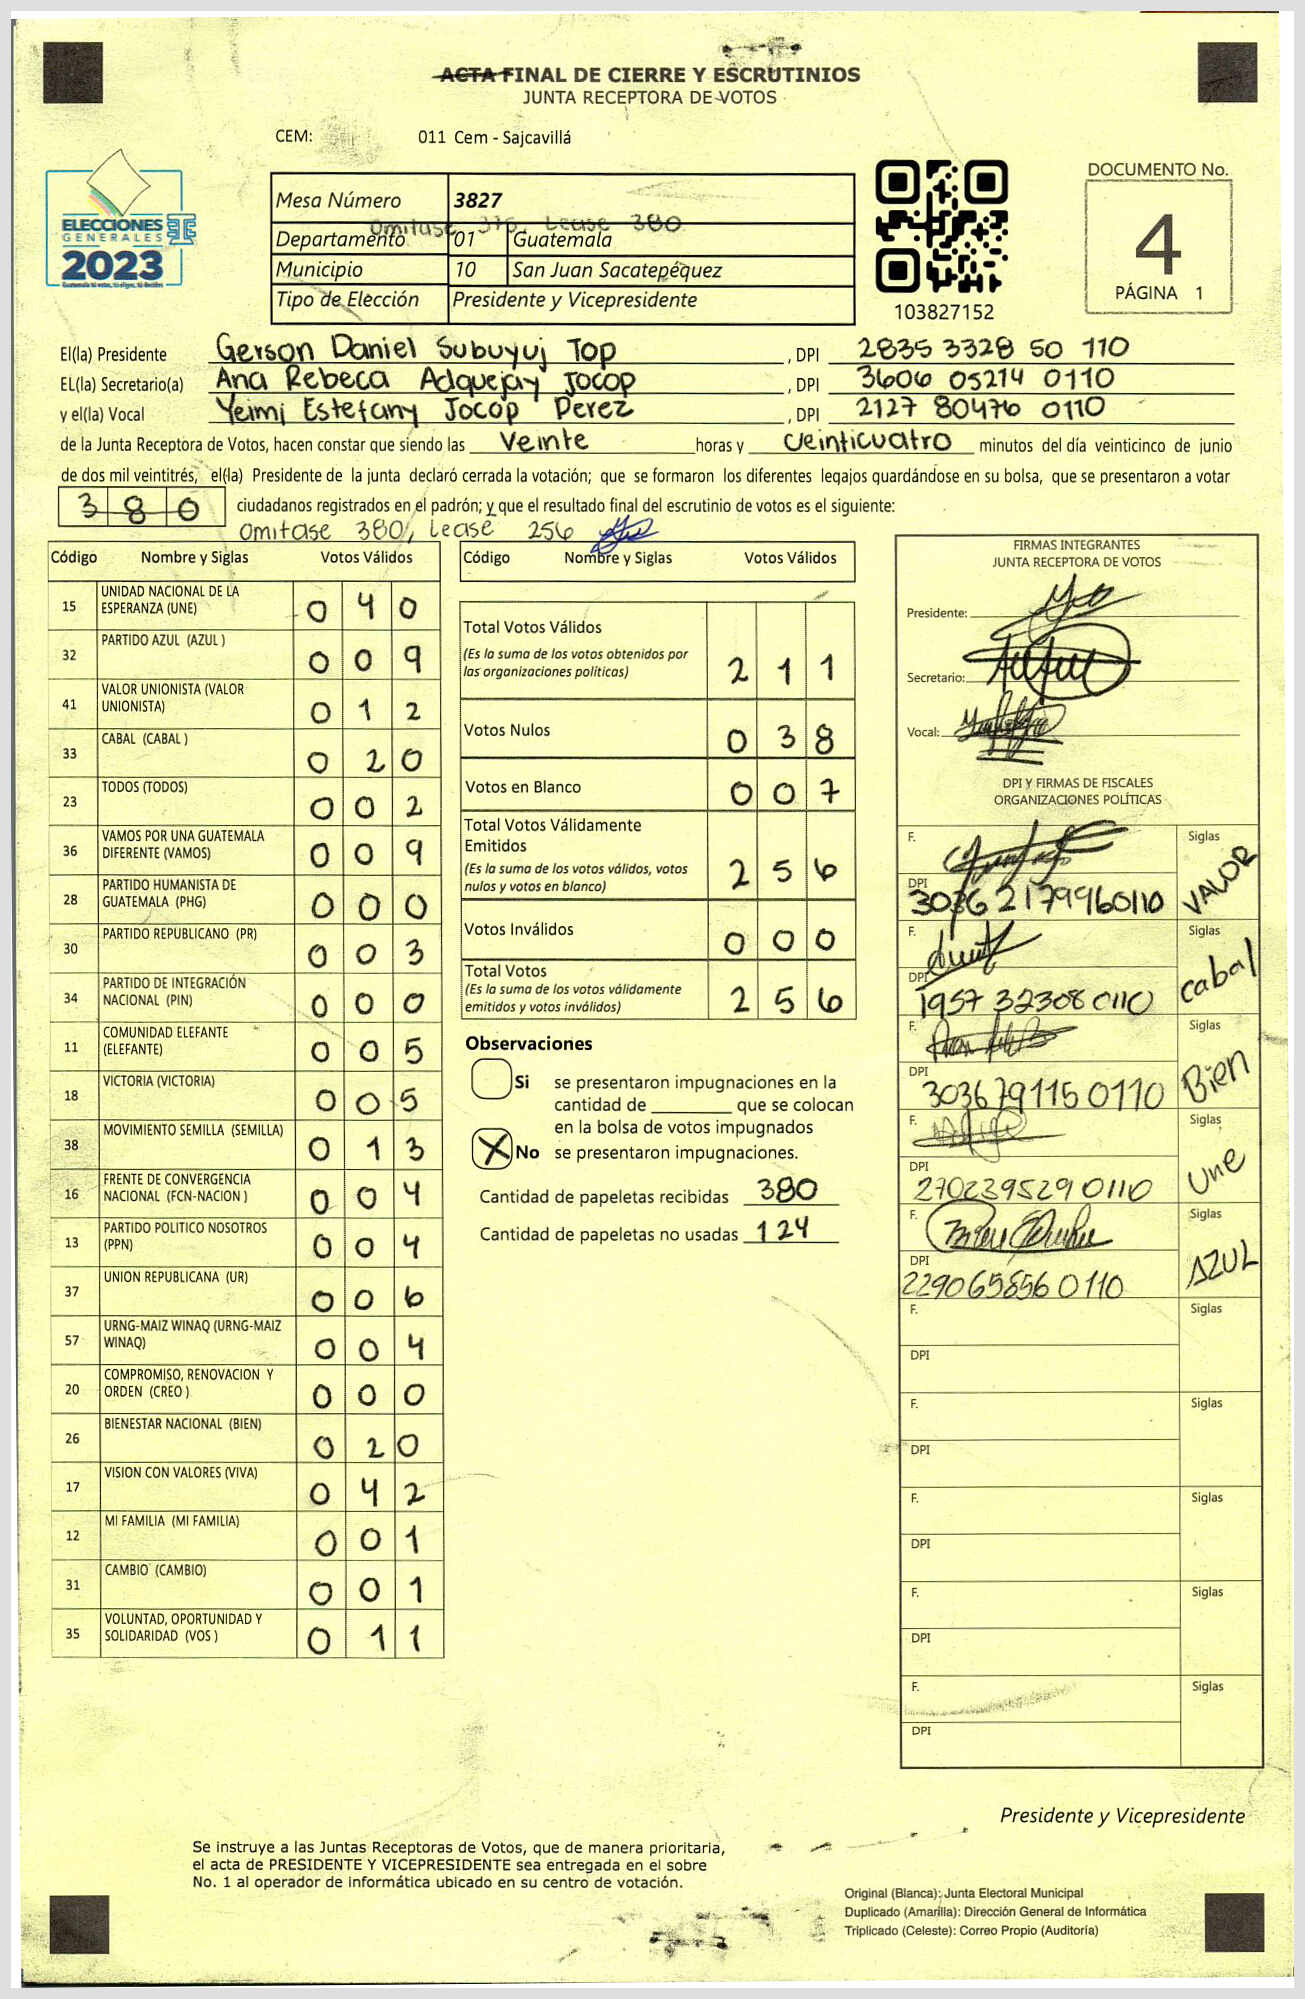 ACTA FINAL DE CIERRE Y ESCRUTINIOS
JUNTA RECEPTORA DE VOTOS
CEM: 011 Cem - Sajcavillá
ELECCIONES
GENERALES
2023
Guatemala tú votas, tú eliges, tú decides
Mesa Número 3827
Omitase 375, Lease 380
Departamento 01 Guatemala
Municipio 10 San Juan Sacatepéquez
Tipo de Elección Presidente y Vicepresidente
103827152
DOCUMENTO No.
4
PÁGINA 1
El(la) Presidente Gerson Daniel Subuyuj Top, DPI 2835 3328 50 110
EL(la) Secretario(a) Ana Rebeca Adquejay Jocop, DPI 3606 05214 0110
y el(la) Vocal Yeimi Estefany Jocop Perez, DPI 2127 80476 0110
de la Junta Receptora de Votos, hacen constar que siendo las Veinte horas y veinticuatro minutos del día veinticinco de junio
de dos mil veintitrés, el(la) Presidente de la junta declaró cerrada la votación; que se formaron los diferentes legajos guardándose en su bolsa, que se presentaron a votar
380 ciudadanos registrados en el padrón; y que el resultado final del escrutinio de votos es el siguiente:
Omitase 380, Lease 256
Código Nombre y Siglas Votos Válidos
15 UNIDAD NACIONAL DE LA ESPERANZA (UNE) 0 4 0
32 PARTIDO AZUL (AZUL ) 0 0 9
41 VALOR UNIONISTA (VALOR UNIONISTA) 0 1 2
33 CABAL (CABAL ) 0 2 0
23 TODOS (TODOS) 0 0 2
36 VAMOS POR UNA GUATEMALA DIFERENTE (VAMOS) 0 0 9
28 PARTIDO HUMANISTA DE GUATEMALA (PHG) 0 0 0
30 PARTIDO REPUBLICANO (PR) 0 0 3
34 PARTIDO DE INTEGRACIÓN NACIONAL (PIN) 0 0 0
11 COMUNIDAD ELEFANTE (ELEFANTE) 0 0 5
18 VICTORIA (VICTORIA) 0 0 5
38 MOVIMIENTO SEMILLA (SEMILLA) 0 1 3
16 FRENTE DE CONVERGENCIA NACIONAL (FCN-NACION ) 0 0 4
13 PARTIDO POLITICO NOSOTROS (PPN) 0 0 4
37 UNION REPUBLICANA (UR) 0 0 6
57 URNG-MAIZ WINAQ (URNG-MAIZ WINAQ) 0 0 4
20 COMPROMISO, RENOVACION Y ORDEN (CREO ) 0 0 0
26 BIENESTAR NACIONAL (BIEN) 0 2 0
17 VISION CON VALORES (VIVA) 0 4 2
12 MI FAMILIA (MI FAMILIA) 0 0 1
31 CAMBIO (CAMBIO) 0 0 1
35 VOLUNTAD, OPORTUNIDAD Y SOLIDARIDAD (VOS ) 0 1 1
Código Nombre y Siglas Votos Válidos
Total Votos Válidos
(Es la suma de los votos obtenidos por
las organizaciones politicas) 2 1 1
Votos Nulos 0 3 8
Votos en Blanco 0 0 7
Total Votos Válidamente
Emitidos
(Es la suma de los votos válidos, votos
nulos y votos en blanco) 2 5 6
Votos Inválidos 0 0 0
Total Votos
(Es la suma de los votos válidamente
emitidos y votos inválidos) 2 5 6
Observaciones
Si se presentaron impugnaciones en la
cantidad de ________ que se colocan
en la bolsa de votos impugnados
X No se presentaron impugnaciones.
Cantidad de papeletas recibidas 380
Cantidad de papeletas no usadas 124
FIRMAS INTEGRANTES
JUNTA RECEPTORA DE VOTOS
Presidente:
Secretario:
Vocal:
DPI Y FIRMAS DE FISCALES
ORGANIZACIONES POLÍTICAS
F. Siglas VALOR
DPI 3036 2179960110
F. Siglas cabal
DPI 1957 32308 0110
F. Siglas Bien
DPI 303679115 0110
F. Siglas Une
DPI 270239529 0110
F. Siglas AZUL
DPI 229065856 0110
F. Siglas
DPI
F. Siglas
DPI
F. Siglas
DPI
F. Siglas
DPI
F. Siglas
DPI
Presidente y Vicepresidente
Se instruye a las Juntas Receptoras de Votos, que de manera prioritaria,
el acta de PRESIDENTE Y VICEPRESIDENTE sea entregada en el sobre
No. 1 al operador de informática ubicado en su centro de votación.
Original (Blanca): Junta Electoral Municipal
Duplicado (Amarilla): Dirección General de Informática
Triplicado (Celeste): Correo Propio (Auditoría)